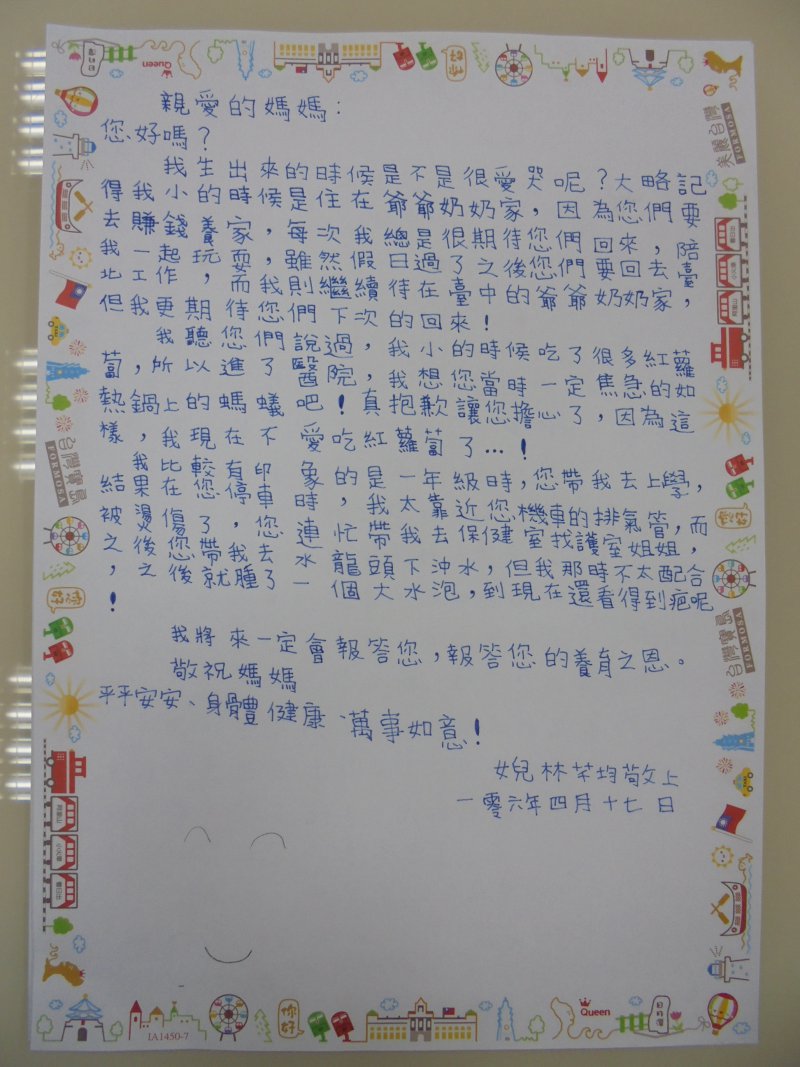 親愛的媽媽：
您好嗎？
我生出來的時候是不是很愛哭呢？大略記
得我小的時候是住在爺爺奶奶家，因為您們要
去賺錢養家，每次我總是很期待您們回來，陪
我一起玩耍，雖然假日過了之後您們要回去臺
北工作，而我則繼續待在臺中的爺爺奶奶家，
但我更期待您們下次的回來！
我聽您們說過，我小的時候吃了很多紅蘿
蔔，所以進了醫院，我想您當時一定焦急的如
熱鍋上的螞蟻吧！真抱歉讓您擔心了，因為這
樣，我現在不愛吃紅蘿蔔了…！
我比較有印象的是一年級時，您帶我去上學，
結果在您停車時，我太靠近您機車的排氣管，而
被燙傷了，您連忙帶我去保健室找護室姐姐，
之後您帶我去水龍頭下沖水，但我那時不太配合
，之後就腫了一個大水泡，到現在還看得到疤呢
！
我將來一定會報答您，報答您的養育之恩。
敬祝媽媽
平平安安、身體健康、萬事如意！
女兒 林芊均敬上
一零六年四月十七日
Queen
你好
台灣寶島
美麗台灣
IA1450-7
你好
Queen